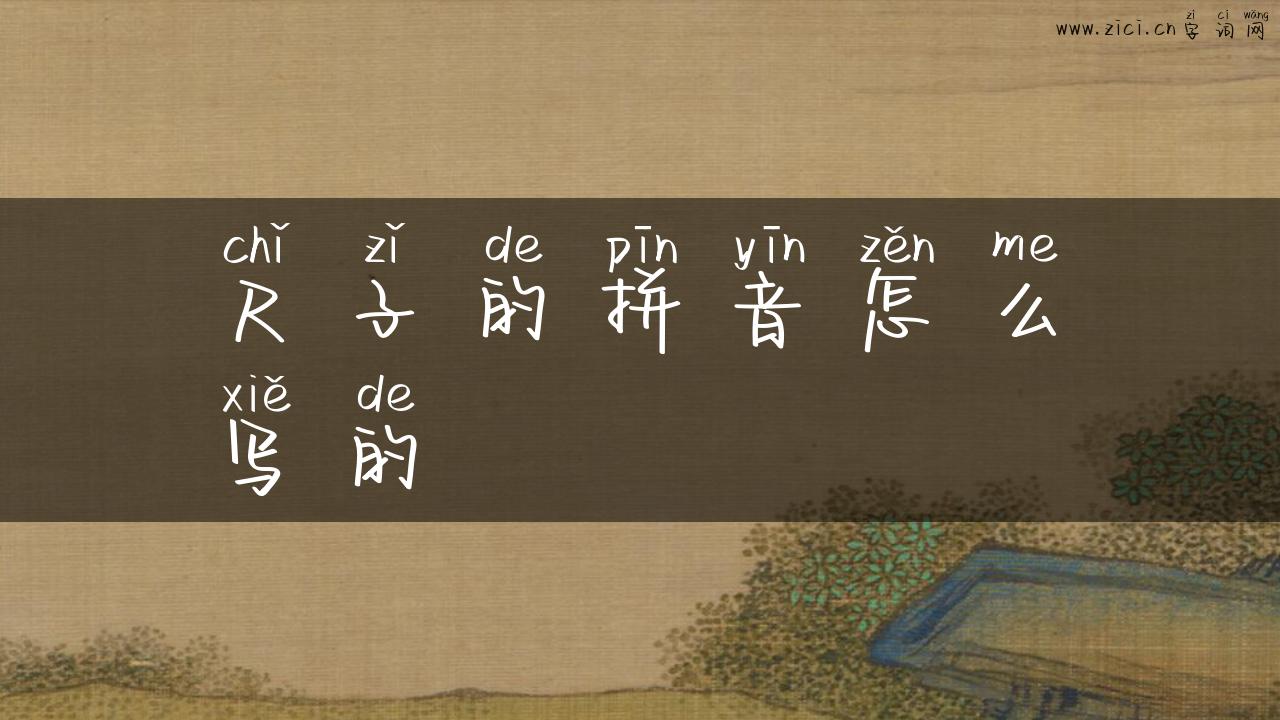 zì cí wǎng
www.zici.cn 字 词 网
chǐ zǐ de pīn yīn zěn me
尺 子 的 拼 音 怎 么
xiě de
写 的